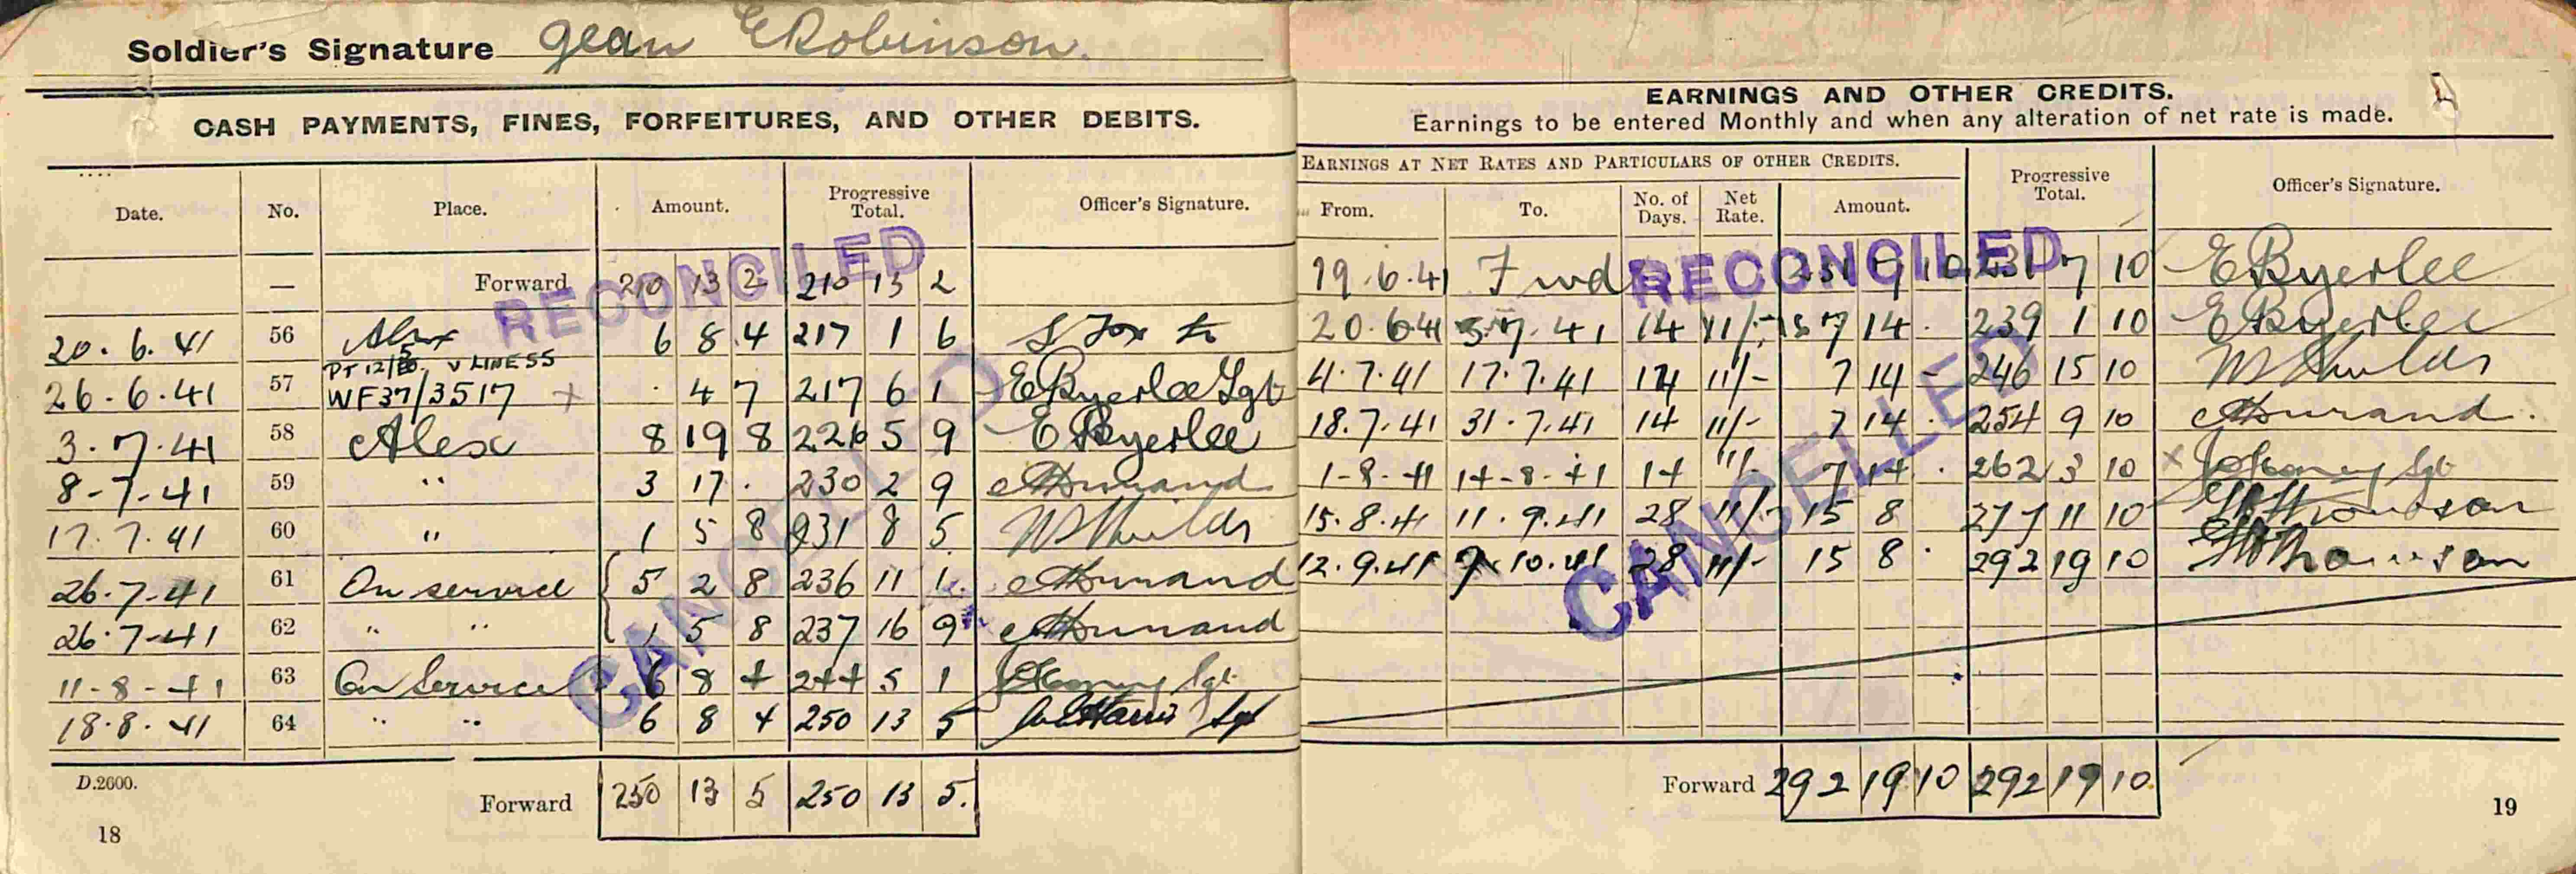 Soldier's Signature Jean E Robinson.
CASH PAYMENTS, FINES, FORFEITURES, AND OTHER DEBITS.
Date. No. Place. Amount. Progressive Total. Officer's Signature.
— Forward 210 13 2 210 13 2
RECONCILED
20. 6. 41 56 Alex 6 8 4 217 1 6
26. 6. 41 57 WF37/3517 + . 4 7 217 6 1 E Byerlee Sgt
3. 7. 41 58 Alex 8 19 8 226 5 9 E Byerlee
8-7-41 59 " 3 17 . 230 2 9
17. 7. 41 60 " 1 5 8 231 8 5
26. 7-41 61 On service 5 2 8 236 11 1
26. 7-41 62 " " 1 5 8 237 16 9
11-8-41 63 On Service 6 8 4 244 5 1 Sgt
18. 8. 41 64 " " 6 8 4 250 13 5 Sgt
CANCELLED
D.2600.
Forward 250 13 5 250 13 5.
18
EARNINGS AND OTHER CREDITS.
Earnings to be entered Monthly and when any alteration of net rate is made.
EARNINGS AT NET RATES AND PARTICULARS OF OTHER CREDITS. Progressive Total. Officer's Signature.
From. To. No. of Days. Net Rate. Amount.
19. 6. 41 Fwd 231 7 10 231 7 10 E Byerlee
RECONCILED
20. 6. 41 3. 7. 41 14 11/- 7 14 . 239 1 10 E Byerlee
4. 7. 41 17. 7. 41 14 11/- 7 14 - 246 15 10
18. 7. 41 31. 7. 41 14 11/- 7 14 . 254 9 10
1-8-41 14-8-41 14 11/- 7 14 . 262 3 10 x Sgt
15. 8. 41 11. 9. 41 28 11/- 15 8 277 11 10
12. 9. 41 9. 10. 41 28 11/- 15 8 . 292 19 10
CANCELLED
Forward 292 19 10 292 19 10
19